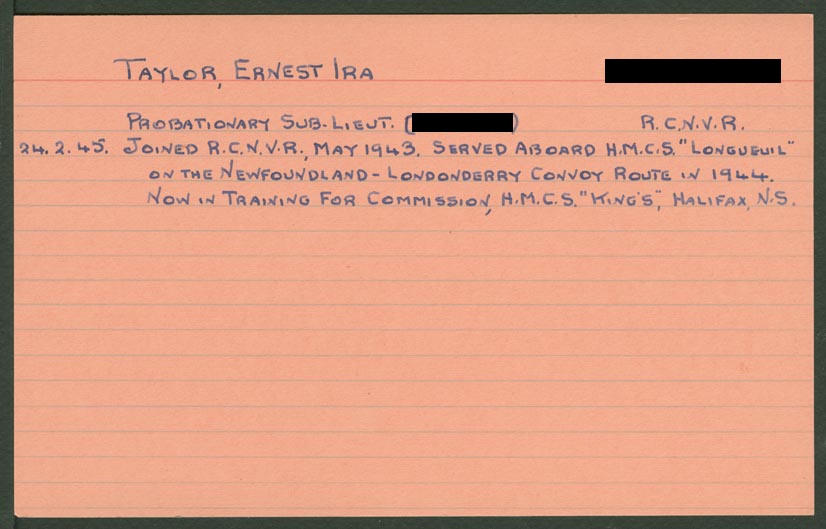 TAYLOR, ERNEST IRA
PROBATIONARY SUB-LIEUT. ( ) R.C.N.V.R.
24.2.45. JOINED R.C.N.V.R., MAY 1943. SERVED ABOARD H.M.C.S. "LONGUEUIL"
ON THE NEWFOUNDLAND-LONDONDERRY CONVOY ROUTE IN 1944.
NOW IN TRAINING FOR COMMISSION, H.M.C.S. "KING'S", HALIFAX, N.S.